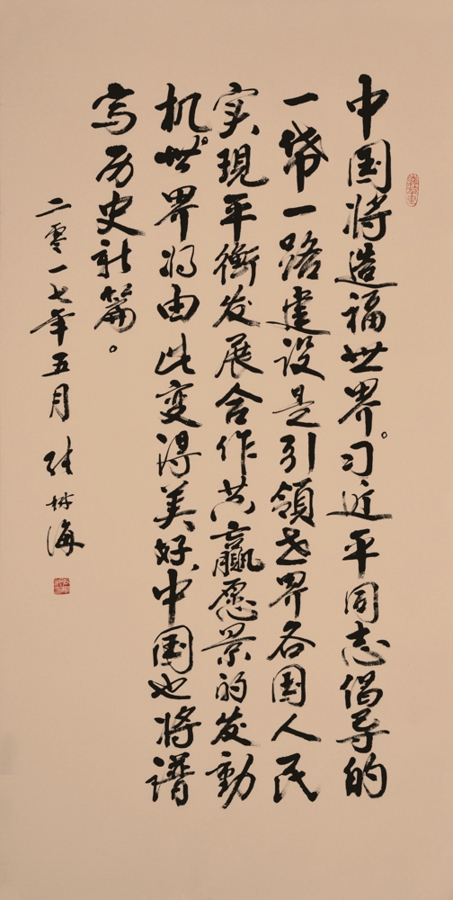 中国将造福世界。习近平同志倡导的
一带一路建设是引领世界各国人民
实現平衡发展合作共赢愿景的发動
机。世界将由此变得美好中国也将譜
写历史新篇。
二零一七年五月 林海